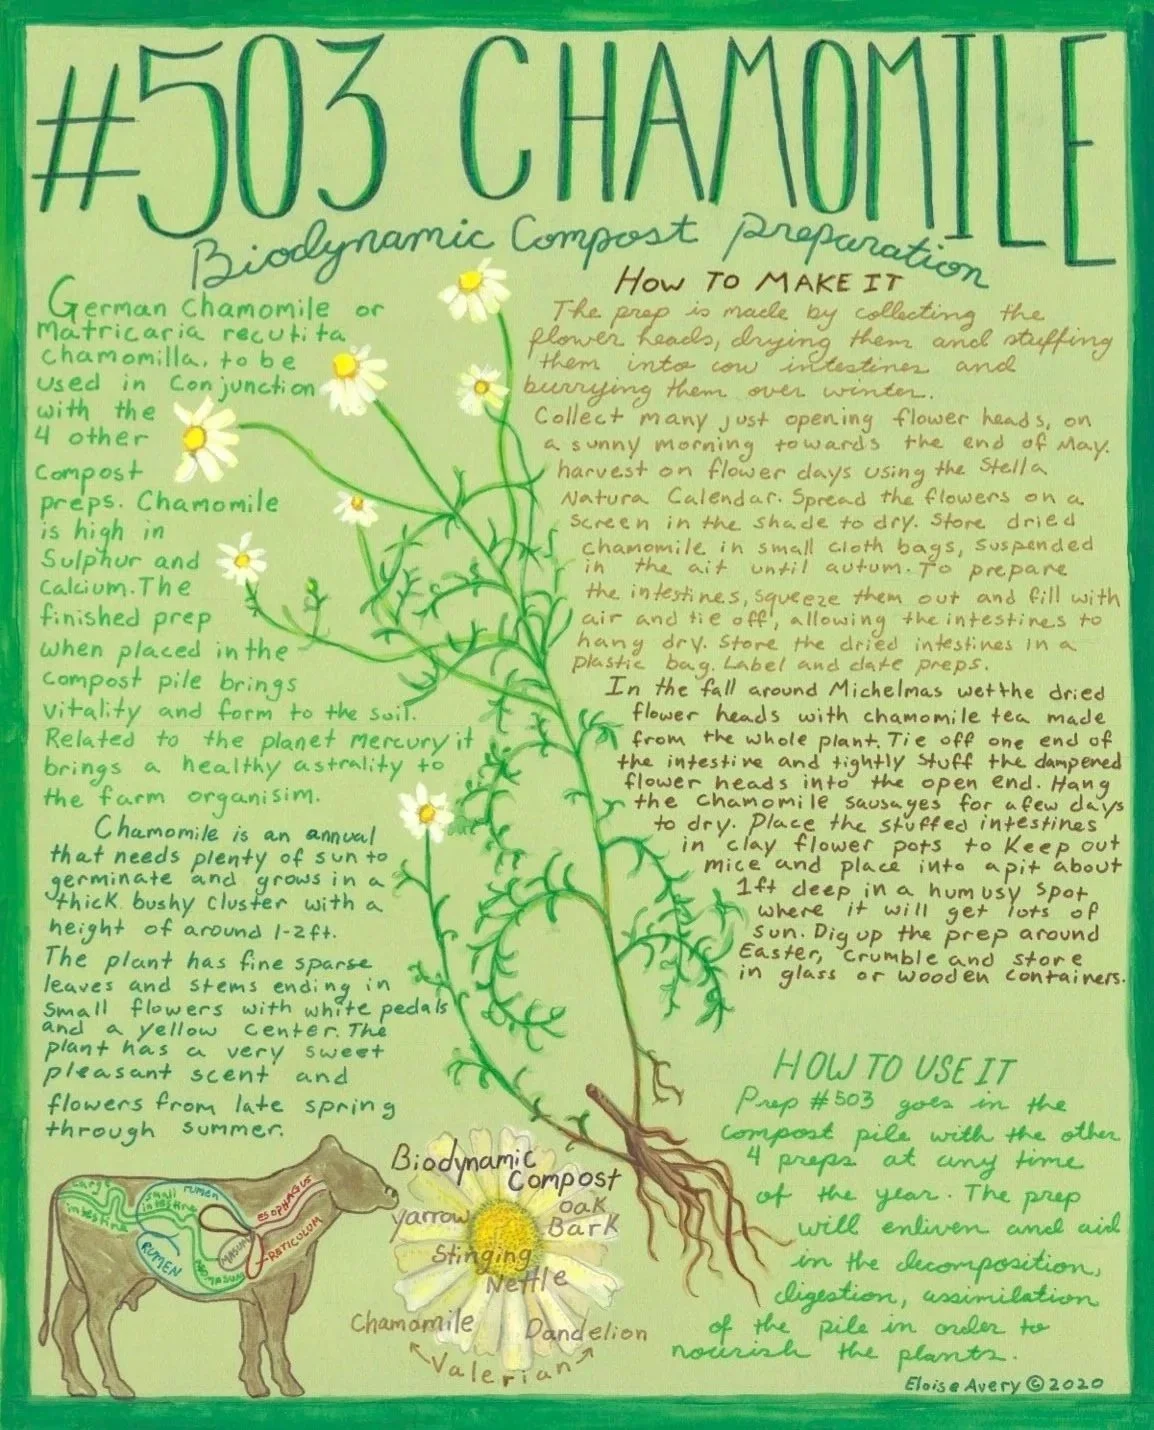 #503 CHAMOMILE
Biodynamic Compost Preparation
German Chamomile or
Matricaria recutita
chamomilla, to be
used in Conjunction
with the
4 other
Compost
preps. Chamomile
is high in
Sulphur and
Calcium. The
finished prep
when placed in the
compost pile brings
vitality and form to the soil.
Related to the planet Mercury it
brings a healthy astrality to
the farm organisim.
Chamomile is an annual
that needs plenty of sun to
germinate and grows in a
thick bushy cluster with a
height of around 1-2ft.
The plant has fine sparse
leaves and stems ending in
small flowers with white pedals
and a yellow center. The
plant has a very sweet
pleasant scent and
flowers from late spring
through summer.
HOW TO MAKE IT
The prep is made by collecting the
flower heads, drying them and stuffing
them into cow intestines and
burrying them over winter.
Collect many just opening flower heads, on
a sunny morning towards the end of May.
harvest on flower days using the Stella
Natura Calendar. Spread the flowers on a
screen in the shade to dry. Store dried
chamomile in small cloth bags, suspended
in the ait until autum. To prepare
the intestines, squeeze them out and fill with
air and tie off, allowing the intestines to
hang dry. Store the dried intestines in a
plastic bag. Label and date preps.
In the fall around Michelmas wet the dried
flower heads with chamomile tea made
from the whole plant. Tie off one end of
the intestine and tightly stuff the dampened
flower heads into the open end. Hang
the chamomile sausages for a few days
to dry. Place the stuffed intestines
in clay flower pots to Keep out
mice and place into a pit about
1ft deep in a humusy spot
where it will get lots of
sun. Dig up the prep around
Easter, crumble and store
in glass or wooden containers.
HOW TO USE IT
Prep #503 goes in the
compost pile with the other
4 preps at any time
of the year. The prep
will enliven and aid
in the decomposition,
digestion, assimilation
of the pile in order to
nourish the plants.
Large
intestine
Small
intestine
rumen
ESOPHAGUS
RETICULUM
RUMEN
Biodynamic
Compost
yarrow
oak
Bark
Stinging
Nettle
Chamomile
Dandelion
Valerian
Eloise Avery © 2020